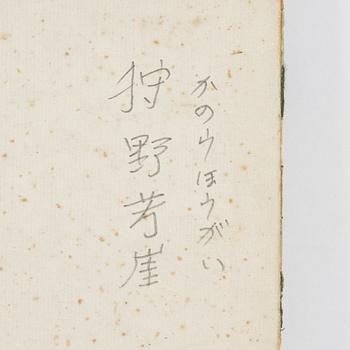 かのうほうがい
狩野芳崖